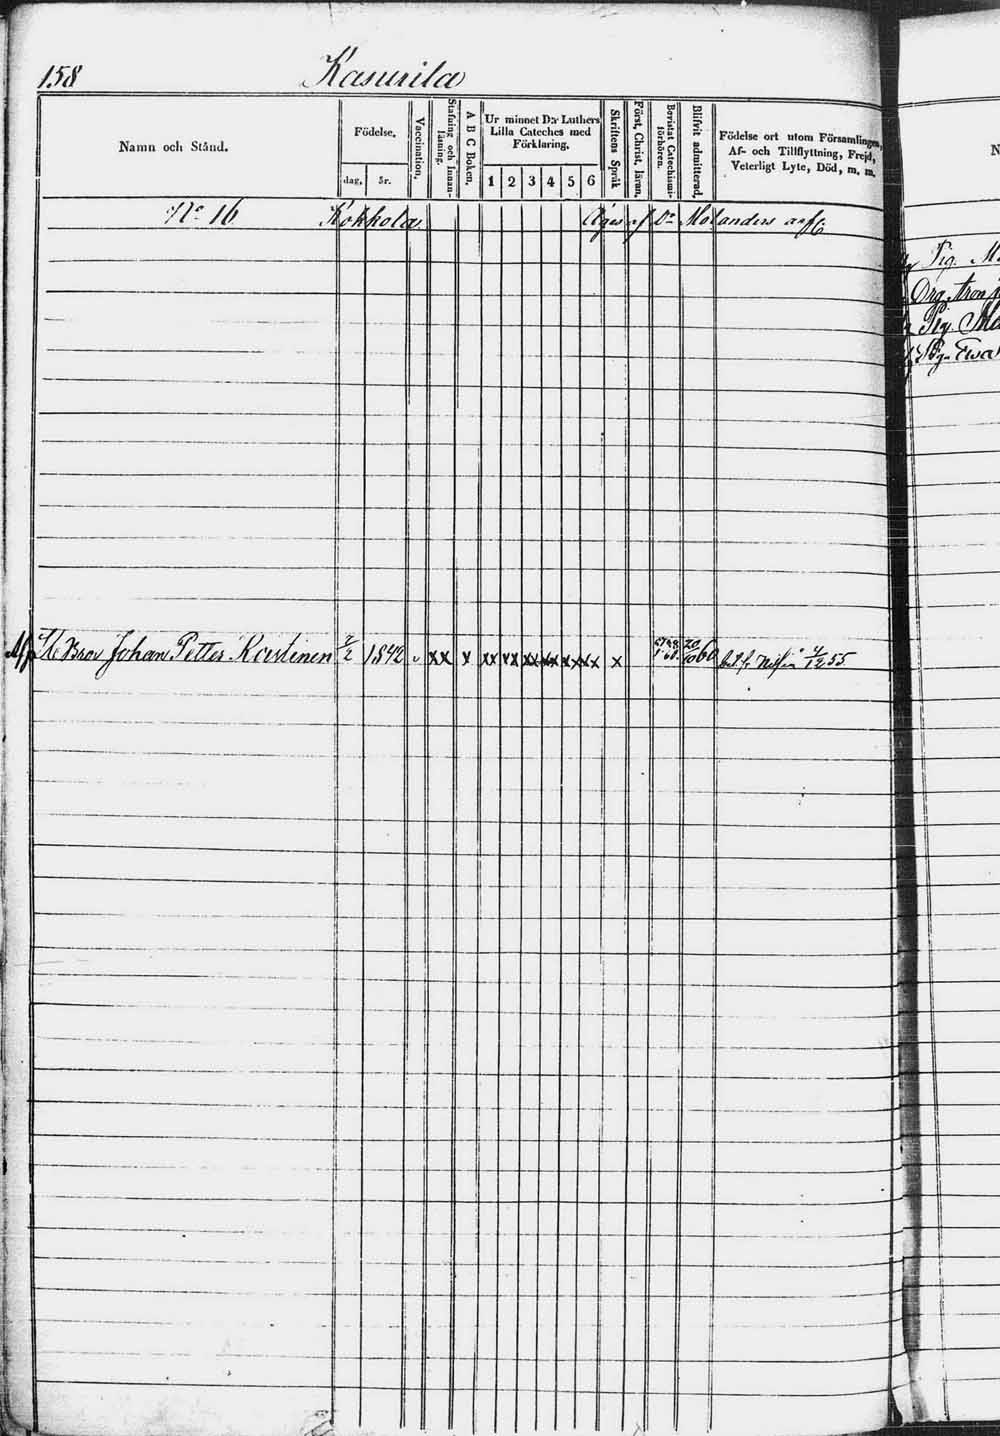 158 Kasurila
Namn och Stånd.
Födelse.
dag. år.
Vaccination.
Stafning och Innanläsning.
A B C Boken.
Ur minnet D:r Luthers
Lilla Cateches med
Förklaring.
1 2 3 4 5 6
Skriftens Språk
Först. Christ. läran.
Bevistat Catechismiförhören.
Blifvit admitterad.
Födelse ort utom Församlingen,
Af- och Tillflyttning, Frejd,
Veterligt Lyte, Död, m. m.
No 16 Kokkola. Äges af Do Molanders
Johan Petter 2/2 1842 v xx x xx xx xx xx xx xx x 20/10 60 4/12 55
N
Pig.
Drg. Aron
Pig.
Ewa